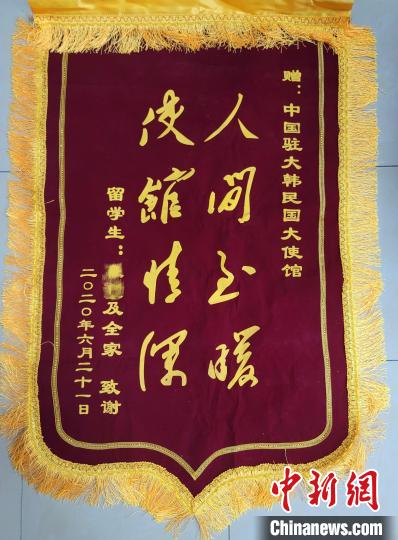 赠：中国驻大韩民国大使馆
人間至暖
使館情深
留学生：及全家 致谢
二〇二〇年六月二十一日
中新网
Chinanews.com